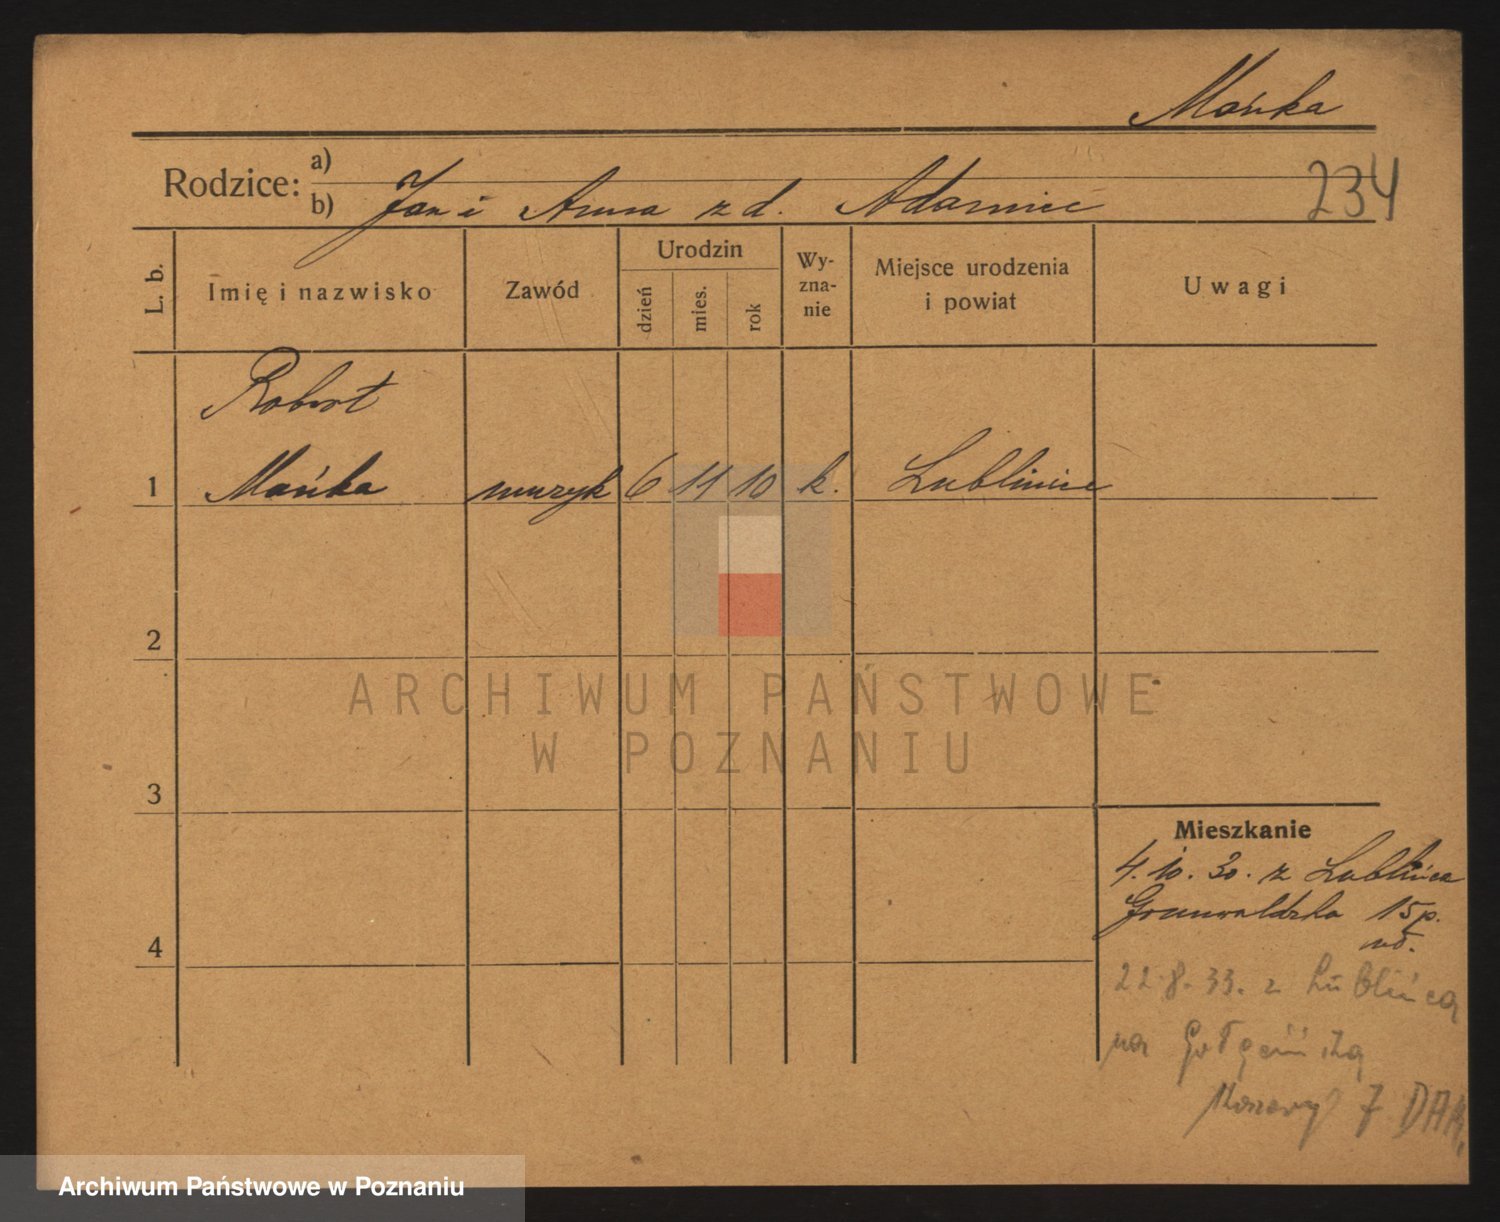 Mańka
Rodzice: a)
b) Jan i Anna z d. Adamiec
234
L. b.
Imię i nazwisko
Zawód
Urodzin
dzień
mies.
rok
Wy-
zna-
nie
Miejsce urodzenia
i powiat
Uwagi
Robert
1 Mańka muzyk 6 11 10 k. Lubliniec
2
ARCHIWUM PAŃSTWOWE
W POZNANIU
3
Mieszkanie
4. 10. 30. z Lublińca
Grunwaldzka 15 p.
4
22. 8. 33. z Lublińca
na
7
Archiwum Państwowe w Poznaniu